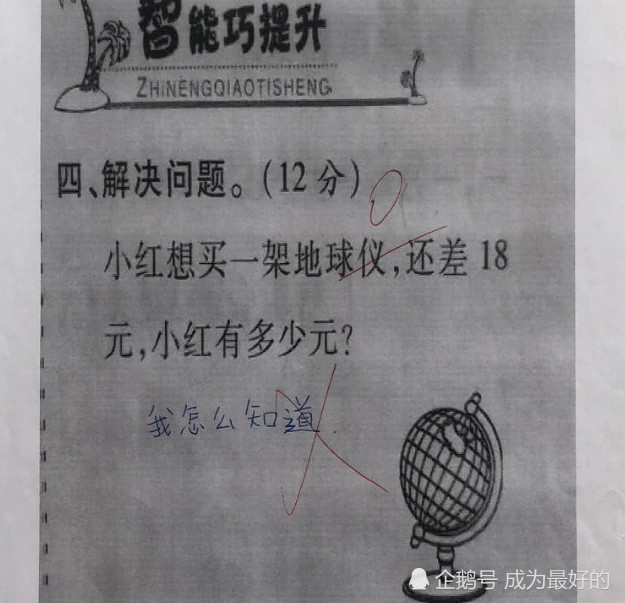 智能巧提升
ZHINENGQIAOTISHENG
四、解决问题。(12分)
0
小红想买一架地球仪,还差 18
元,小红有多少元?
我怎么知道.
企鹅号 成为最好的